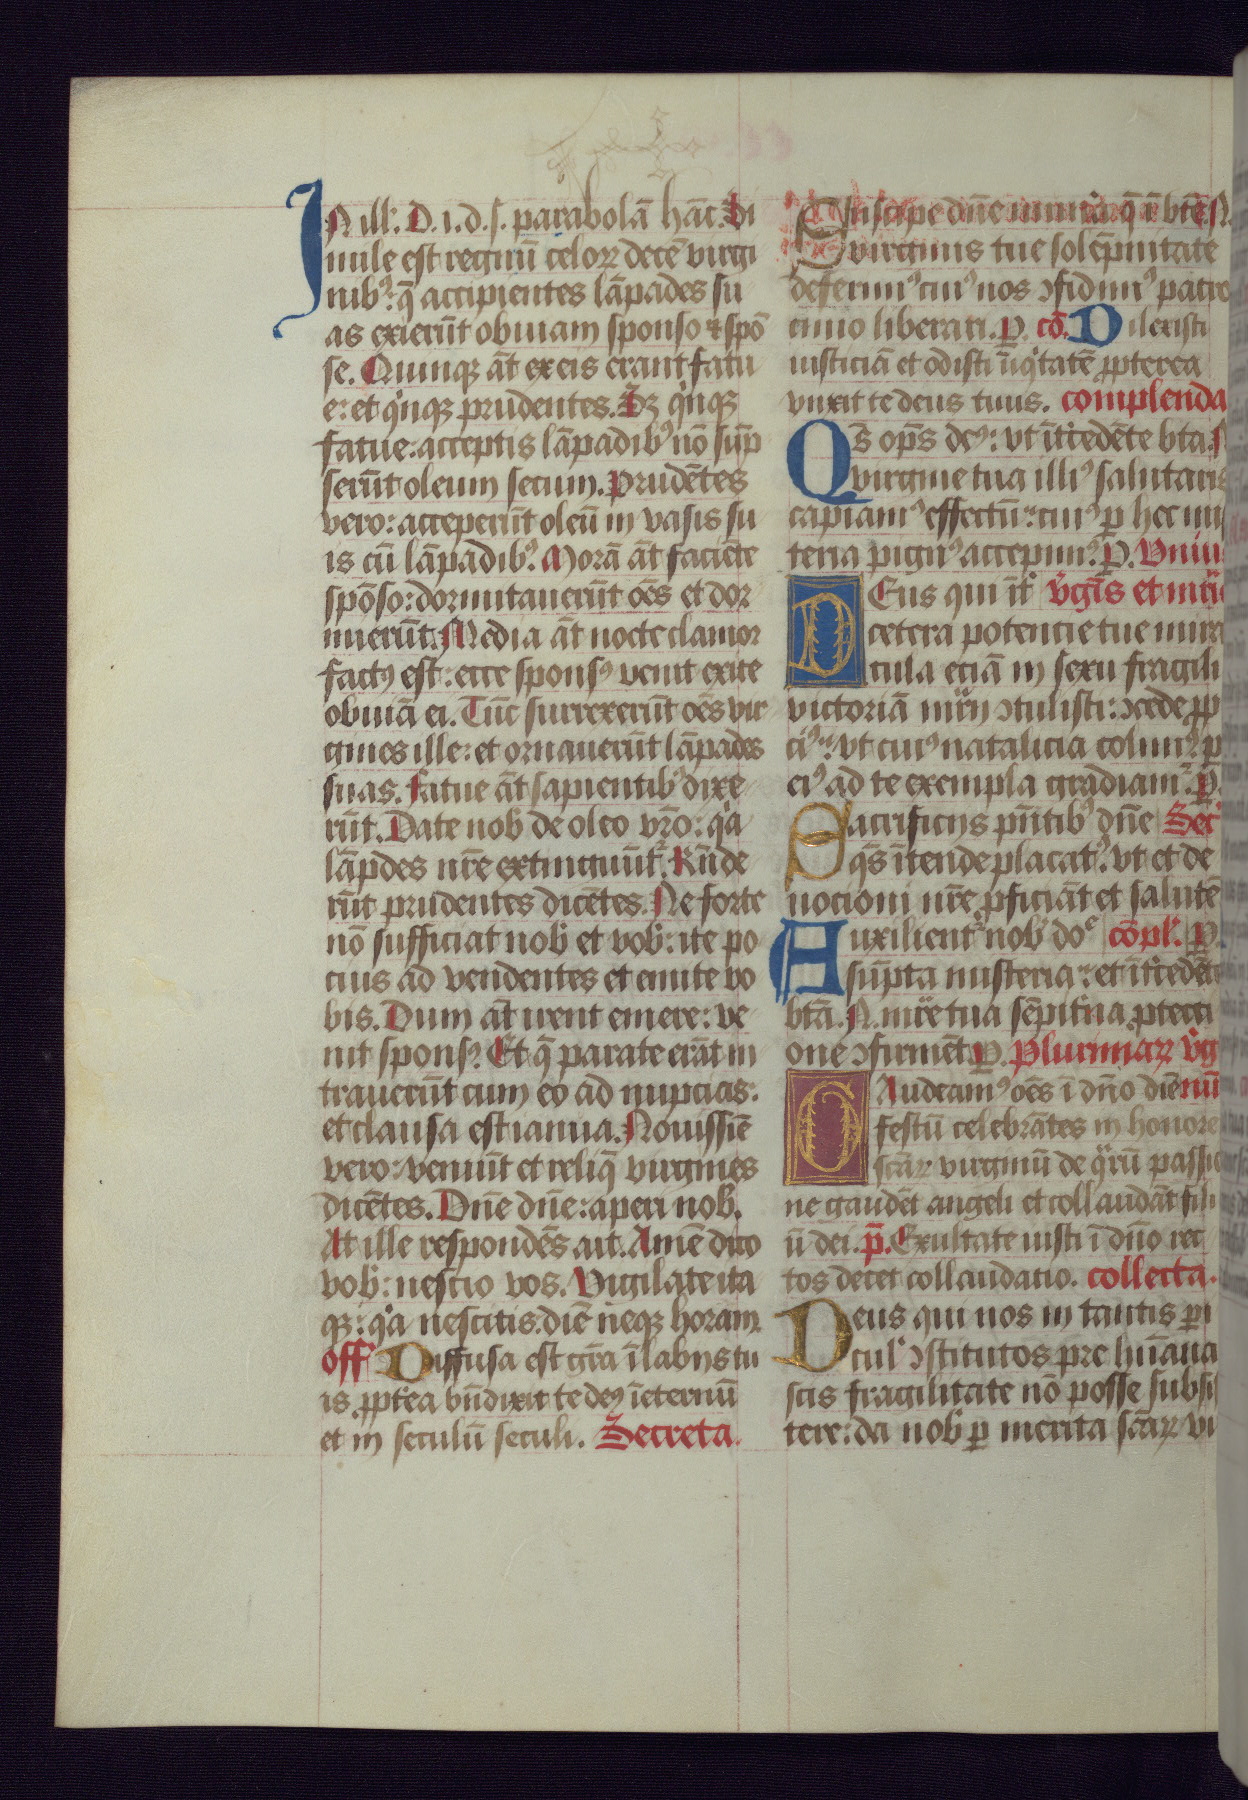 IN ill'. D. i. d. s. parabolā hāc. Si
mile est regnū celoꝝ decē virgi
nibꝰ: q̄ accipientes lāpades su
as exierūt obuiam sponso ⁊ spō
se. Quinqꝫ āt ex eis erant fatu
e: et q'nqꝫ prudentes. Sꝫ q'nqꝫ
fatue: acceptis lāpadibꝰ nō sūp
serūt oleum secum. Prudētes
vero: acceperūt oleū in vasis su
is cū lāpadibꝰ. Morā āt faciēte
spōso: dormitauerūt oēs et dor
mierūt. Media āt nocte clamor
factꝰ est: ecce sponsꝰ venit exite
obuiā ei. Tūc surrexerūt oēs vir
gines ille: et ornauerūt lāpades
suas. Fatue āt sapientibꝰ dixe
rūt. Date nob' de oleo vr̄o: q'a
lāpdes nr̄e extinguūt'. Rn̄de
rūt prudentes dicētes. Ne forte
nō sufficiat nob' et vob': ite po
cius ad vendentes et emite vo
bis. Dum āt irent emere: ve
nit sponsꝰ. Et q̄ parate erāt in
trauerūt cum eo ad nupcias:
et clausa est ianua. Nouissīe
vero: veniūt et reliq̄ virgines
dicētes. Dn̄e dn̄e: aperi nob'.
At ille respondēs ait. Amē dico
vob': nescio vos. Vigilate ita
qꝫ: q'a nescitis diē neqꝫ horam.
off' Diffusa est gr̄a ī labijs tu
is ꝓpt'ea bn̄dixit te deꝰ īeternū
et in seculū seculi. Secreta.
Suscipe dn̄e mun'a q̄ ī bt̄e N.
virginis tue solēpnitate
deferimꝰ cuiꝰ nos ↄfidimꝰ patro
cinio liberari. P. cō. Dilexisti
iusticiā et odisti īiq'tatē ꝓpterea
vnxit te deus tuus. complenda
Qs̄ op̄s deꝰ: vt īt'cedēte bta. N
virgine tua illiꝰ salutaris
capiamꝰ effectū: cuiꝰ ꝑ hec mi
teria pignꝰ accepimꝰ. P. Vniu
DEus qui īt' v'gīs et mr̄i
cetera potencie tue mira
cula eciā in sexu fragili
victoriā mr̄ij ↄtulisti: ↄcede ꝓp
ciꝰ: vt cuiꝰ natalicia colimꝰ ꝑ
eiꝰ ad te exempla gradiamꝰ. P.
Sacrificijs pn̄tibꝰ dn̄e Sec'
qs̄ ītende placatꝰ: vt et de
uocioni nr̄e ꝓficiāt et salutē
Auxilient' nob' do' cōpl'. P.
sūpta misteria: et īt'cedēte
btā. N. mr̄e tua sēpit'na ꝓtecti
one ↄfirmēt P. Plurimaꝝ v'g
GAudeamꝰ oēs ī dn̄o diē nū
festū celebrātes in honore
scāꝝ virginū de q'rū passio
ne gaudēt angeli et collaudāt fili
ū dei. p̄. Exultate iusti ī dn̄o rec
tos decet collaudatio. collecta.
Deus qui nos in tantis ꝑi
cul' ↄstitutos pro hūana
scis fragilitate nō posse subsis
tere: da nob' ꝑ merita scāꝝ vi